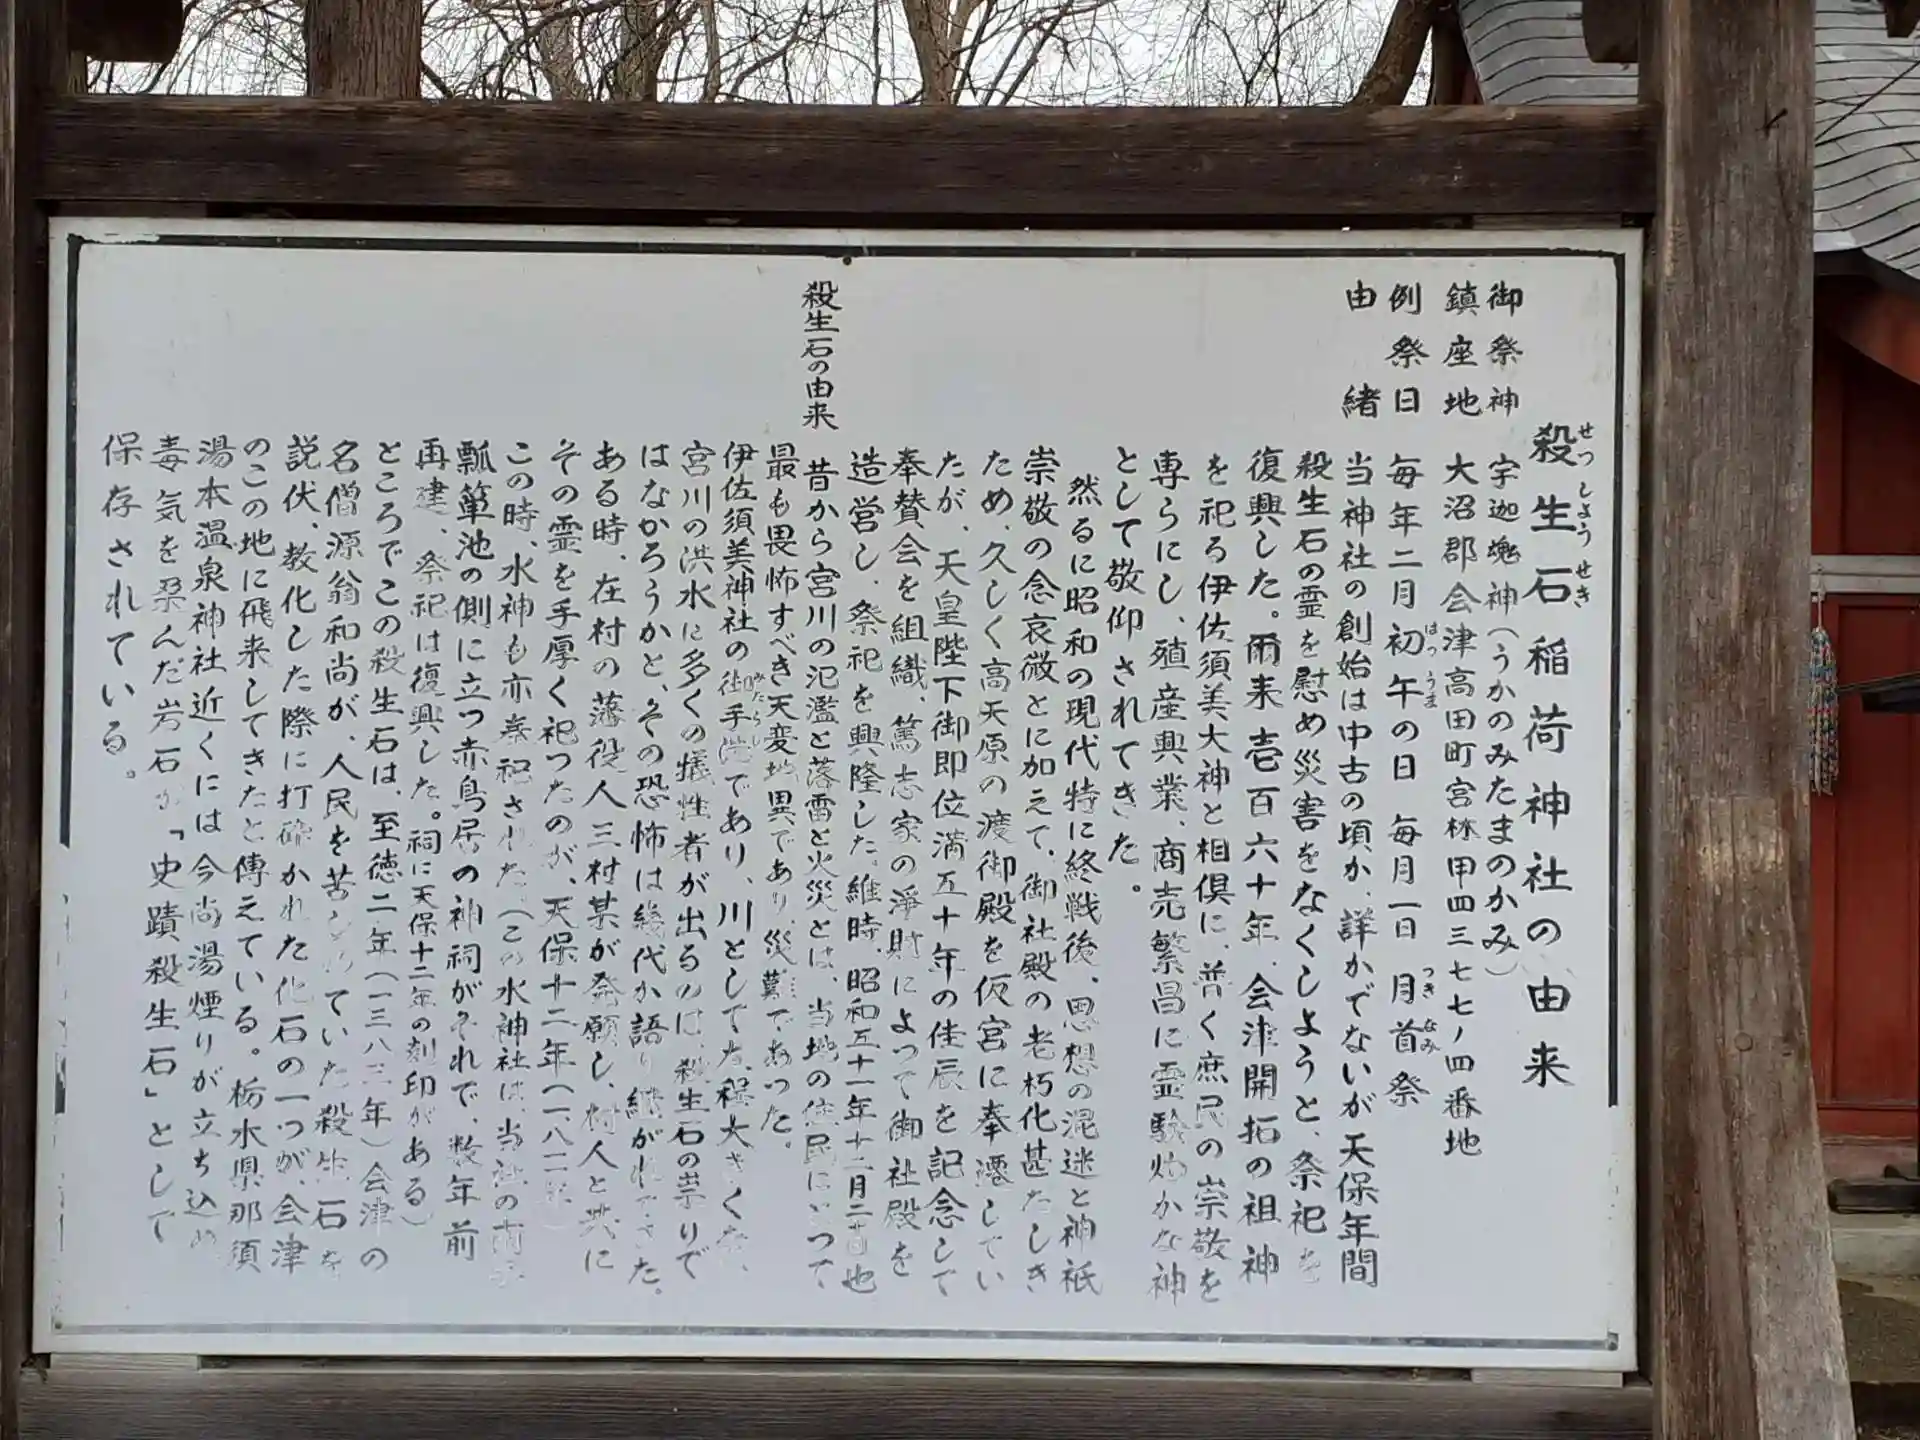 殺生石稲荷神社の由来
せっしょうせき
御祭神 宇迦魂神(うかのみたまのかみ)
鎮座地 大沼郡会津高田町宮林甲四三七七ノ四番地
例祭日 毎年二月初午の日 毎月一日 月首祭
はつうま
つきなみ
由緒 当神社の創始は中古の頃か、詳かでないが天保年間
殺生石の霊を慰め災害をなくしようと、祭祀を
復興した。爾来壱百六十年、会津開拓の祖神
を祀る伊佐須美大神と相俱に、普く庶民の崇敬を
専らにし、殖産興業、商売繁昌に霊験灼かな神
として敬仰されてきた。
然るに昭和の現代特に終戦後、思想の混迷と神祇
崇敬の念衰微とに加えて、御社殿の老朽化甚だしき
ため、久しく高天原の渡御殿を仮宮に奉遷してい
たが、天皇陛下御即位満五十年の佳辰を記念して
奉賛会を組織、篤志家の浄財によって御社殿を
造営し、祭祀を興隆した。維時、昭和五十一年十二月二十
也
殺生石の由来 昔から宮川の氾濫と落雷と火災とは、当地の住民にとって
最も畏怖すべき天変地異であり、災であった。
伊佐須美神社の御手洗であり、川としてた程大きくな、
みたらし
宮川の洪水に多くの犠牲者が出るのは、殺生石の祟りで
はなかろうかと、その恐怖は幾代か語り継がれてきた。
ある時、在村の藩役人三村某が発願し、村人と共に
その霊を手厚く祀ったのが、天保十二年(一八二
この時、水神も亦奉祀された。(この水神社は、当社の南
瓢簞池の側に立つ赤鳥居の神祠がそれで、数年前
再建、祭祀は復興した。祠に天保十二年の刻印がある)
ところでこの殺生石は、至徳二年(一三八三年)会津の
名僧源翁和尚が、人民を苦しめていた殺生石を
説伏、教化した際に打砕かれた化石の一つが、会津
のこの地に飛来してきたと傳えている。栃木県那須
湯本温泉神社近くには今尚湯煙りが立ち込め
毒気を孕んだ岩石が「史蹟殺生石」として
保存されている。